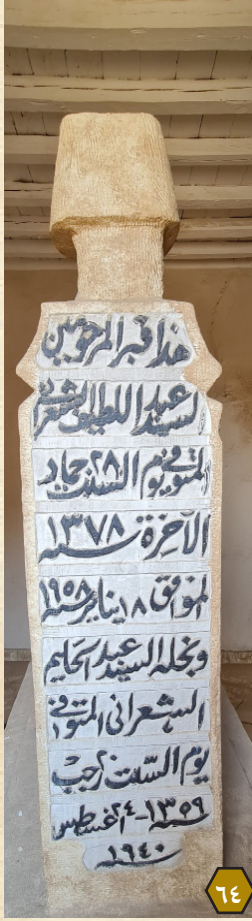 هذا قبر المرحومين
السيد عبد اللطيف الشعرانى
المتوفى يوم السبت ٢٨ جماد
الآخرة سنة ١٣٧٨
الموافق ١٨ يناير سنة ١٩٥٨
ونجله السيد عبد الحليم
الشعرانى المتوفى
يوم السبت ٢٠ رجب
سنة ١٣٥٩ - ٢٤ اغسطس
سنة ١٩٤٠
٦٤